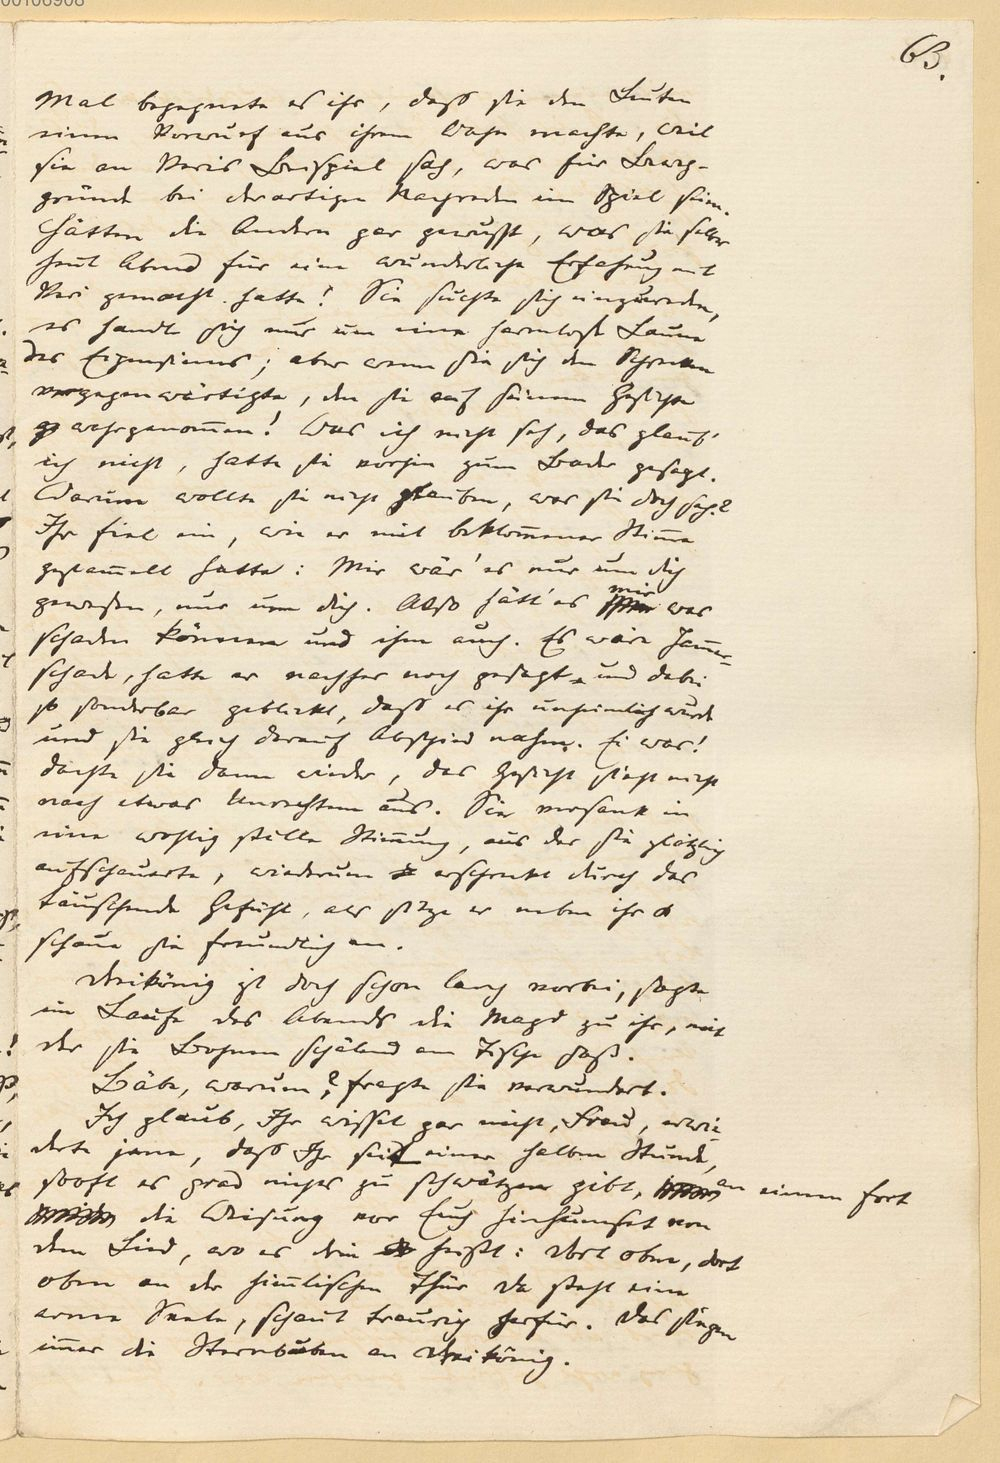 63.
Mal begegnete es ihr, daß sie den Leuten
einen Vorwurf aus ihrem Wahn machte, weil
sie an Veris Beispiel sah, was für Beweg-
gründe bei derartigen Nachreden im Spiel seien.
Hätten die Andern gar gewußt, was sie selber
heut Abend für eine wunderliche Erfahrung mit
Veri gemacht hatte! Sie suchte sich einzureden,
es handle sich nur um eine harmlose Laune
des Eigensinns; aber wenn sie sich den Schrecken
vergegenwärtigte, den sie auf seinem Gesichte
wahrgenommen! Was ich nicht seh, das glaub'
ich nicht, hatte sie vorhin zum Bader gesagt.
Warum wollte sie nicht glauben, was sie doch sah?
Ihr fiel ein, wie er mit beklommener Stimme
gestammelt hatte: Mir wär' es nur um dich
gewesen, nur um dich. Also hätt' es mir was
schaden können und ihm auch. Es wäre Jammer-
schade, hatte er nachher noch gesagt und dabei
so sonderbar geblickt, daß es ihr unheimlich wurde
und sie gleich darauf Abschied nahm. Ei was!
dachte sie dann wieder, das Gesicht sieht nicht
nach etwas Unrechtem aus. Sie versank in
eine wohlig stille Stimmung, aus der sie plötzlich
aufschauerte, wiederum erschreckt durch das
täuschende Gefühl, als sitze er neben ihr &
schaue sie freundlich an.
Dreikönig ist doch schon lang vorbei, sagte
im Laufe des Abends die Magd zu ihr, mit
der sie Bohnen schälend am Tische saß.
Bäbe, warum? fragte sie verwundert.
Ich glaub, Ihr wisset gar nicht, Frau, erwi-
derte jene, daß Ihr seit einer halben Stunde,
sooft es grad nichts zu schwätzen gibt, an einem fort
die Weisung vor Euch hinhumset von
dem Lied, wo es drin heißt: Dort oben, dort
oben an der himmlischen Thür da steht eine
arme Seele, schaut traurig herfür. Das singen
immer die Sternbuben an Dreikönig.